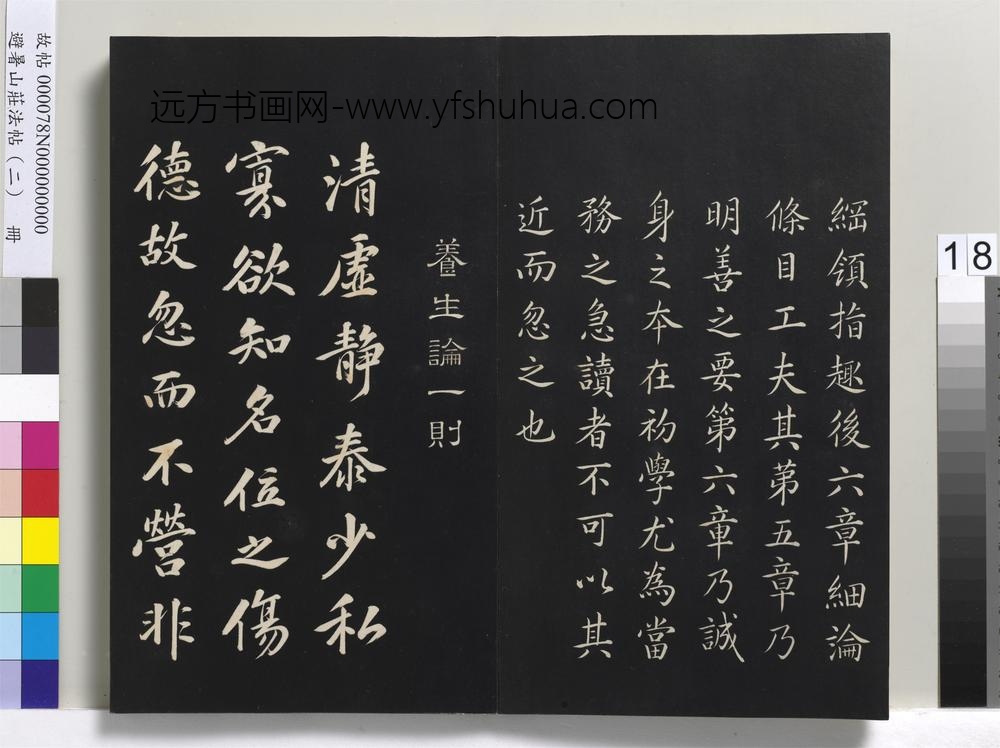 綱領指趣後六章細論
條目工夫其第五章乃
明善之要第六章乃誠
身之本在初學尤為當
務之急讀者不可以其
近而忽之也
養生論一則
清虛靜泰少私
寡欲知名位之傷
德故忽而不營非
远方书画网-www.yfshuhua.com
故帖 000078N000000000
避暑山莊法帖（二） 冊
18